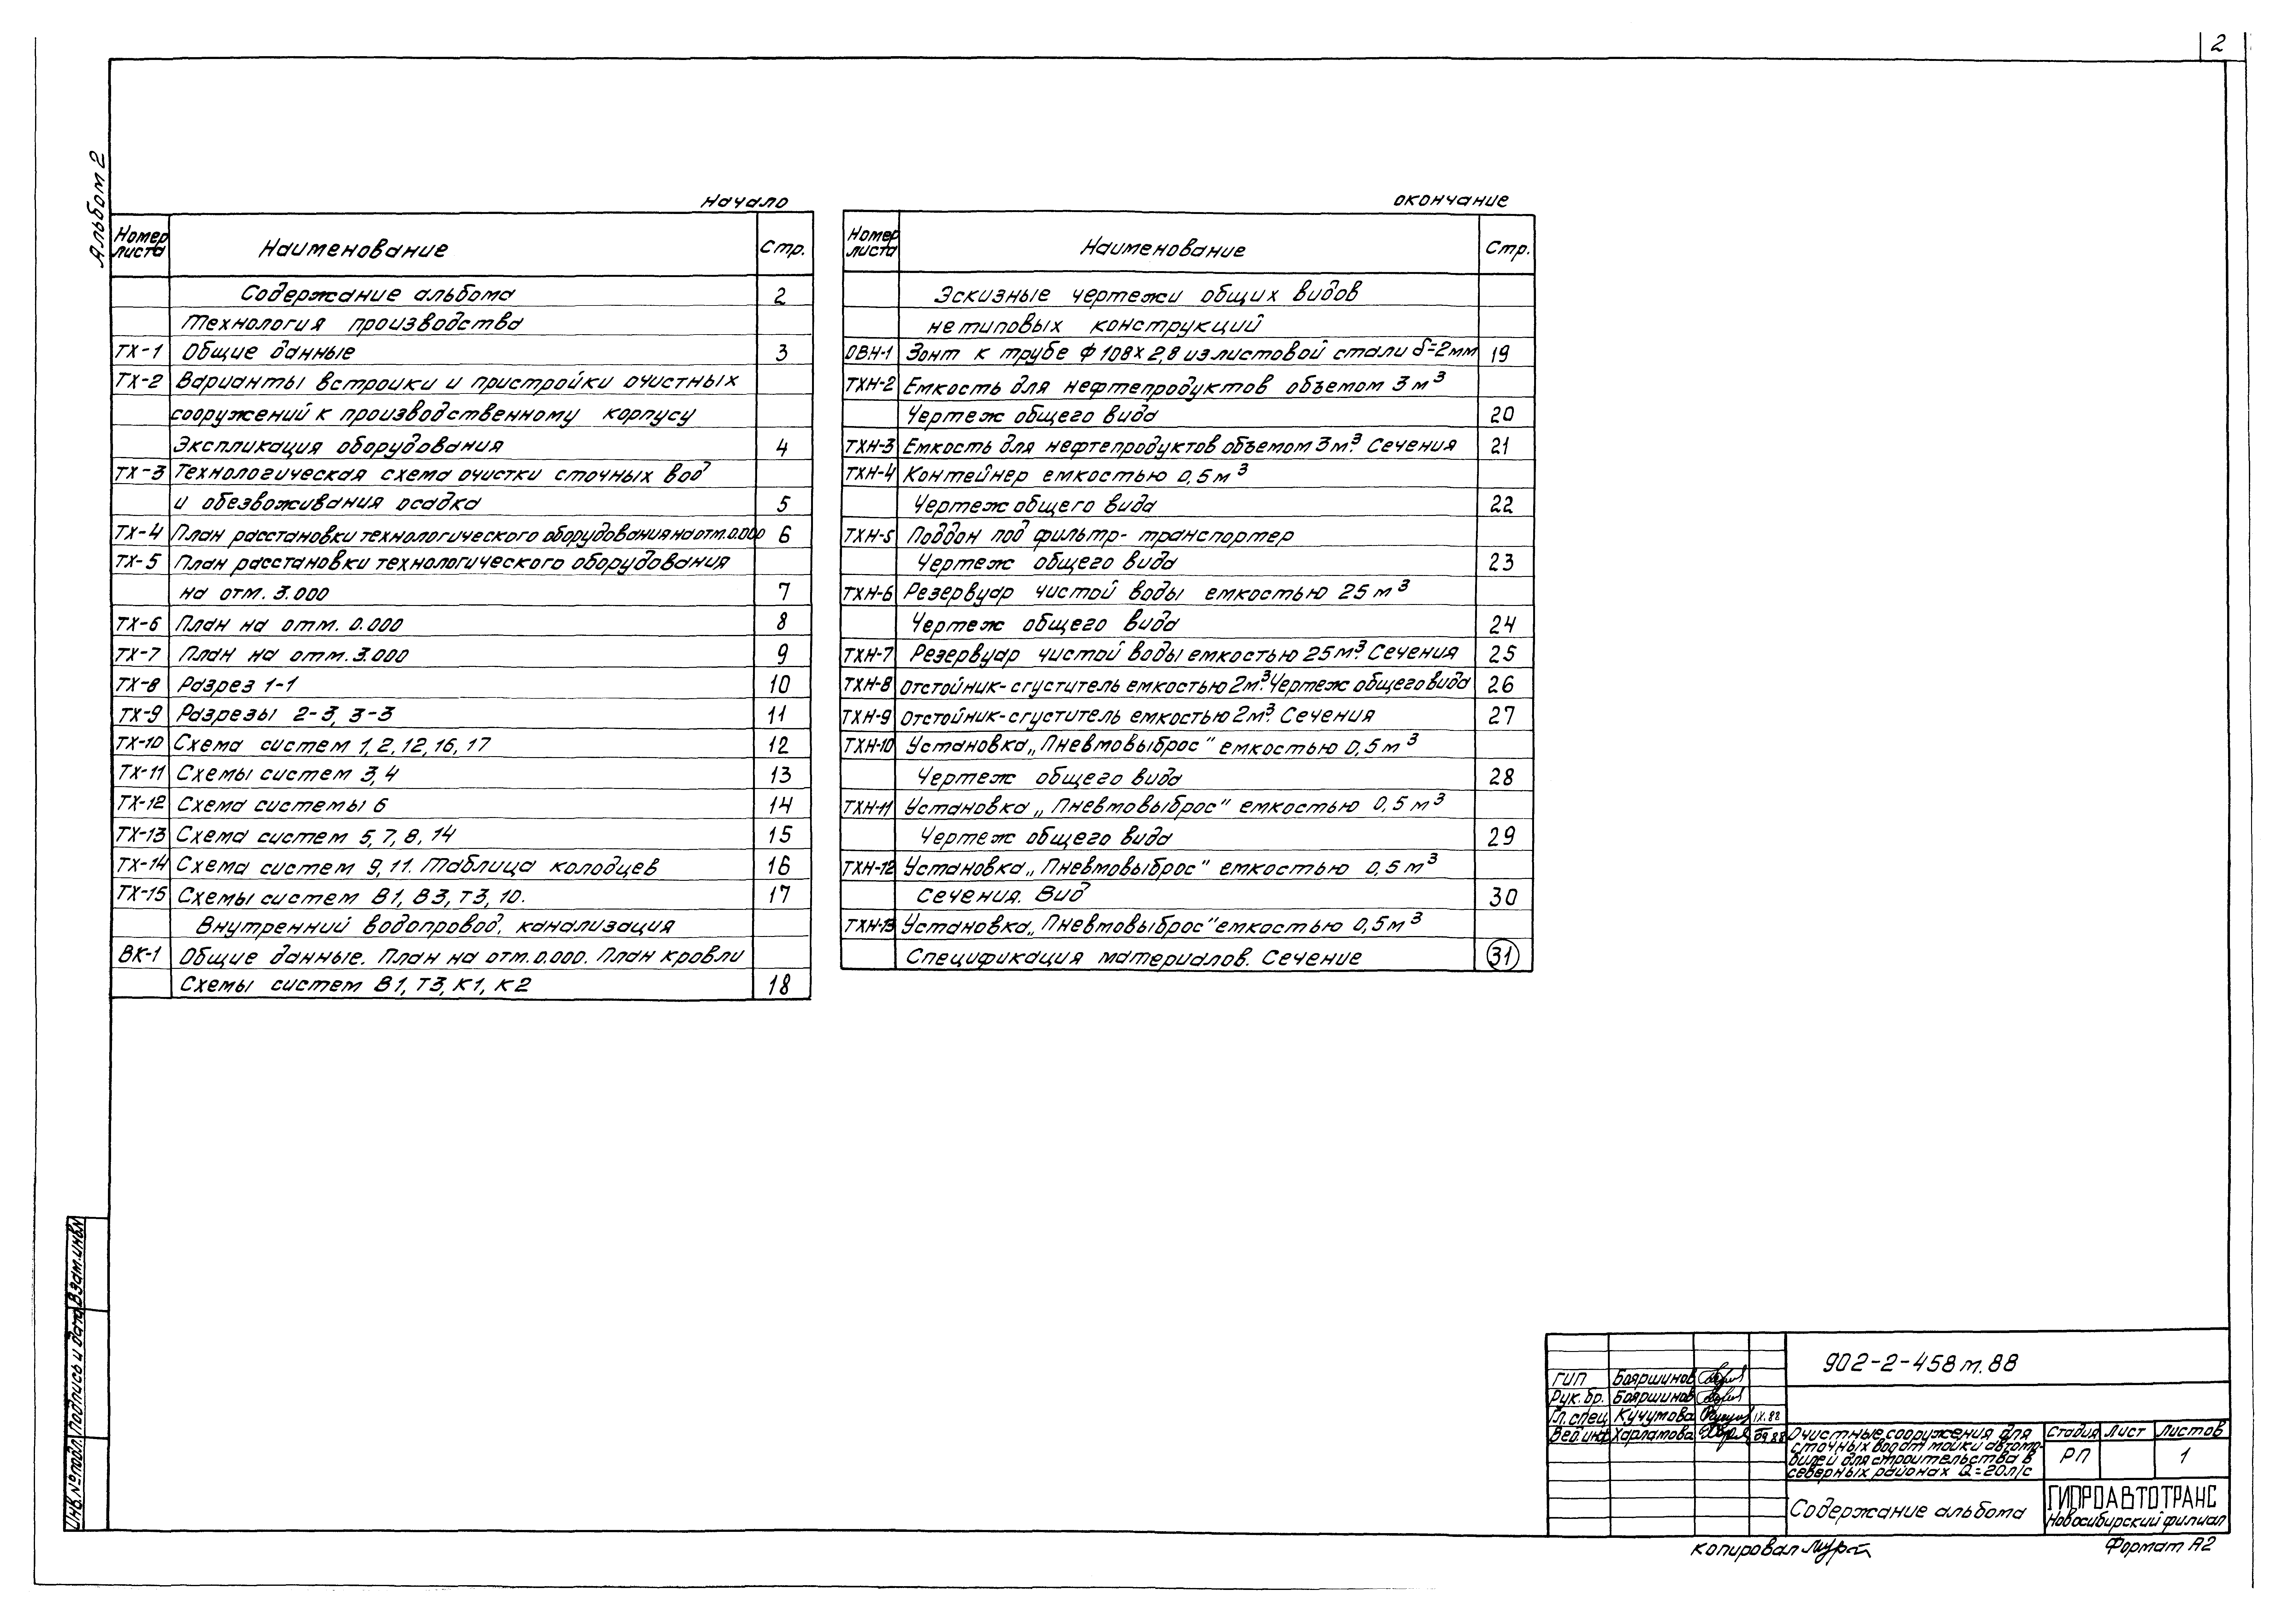 2
Альбом 2
Начало
Номер листа Наименование Стр.
Содержание альбома 2
Технология производства
ТХ-1 Общие данные 3
ТХ-2 Варианты встройки и пристройки очистных
сооружений к производственному корпусу
Экспликация оборудования 4
ТХ-3 Технологическая схема очистки сточных вод
и обезвоживания осадка 5
ТХ-4 План расстановки технологического оборудования на отм. 0.000 6
ТХ-5 План расстановки технологического оборудования
на отм. 3.000 7
ТХ-6 План на отм. 0.000 8
ТХ-7 План на отм. 3.000 9
ТХ-8 Разрез 1-1 10
ТХ-9 Разрезы 2-3, 3-3 11
ТХ-10 Схема систем 1, 2, 12, 16, 17 12
ТХ-11 Схемы систем 3, 4 13
ТХ-12 Схема системы 6 14
ТХ-13 Схема систем 5, 7, 8, 14 15
ТХ-14 Схема систем 9, 11. Таблица колодцев 16
ТХ-15 Схемы систем В1, В3, Т3, 10. 17
Внутренний водопровод, канализация
ВК-1 Общие данные. План на отм. 0.000. План кровли
Схемы систем В1, Т3, К1, К2 18
окончание
Номер листа Наименование Стр.
Эскизные чертежи общих видов
нетиповых конструкций
ОВН-1 Зонт к трубе Ф 108х2,8 из листовой стали δ=2мм 19
ТХН-2 Емкость для нефтепродуктов объемом 3м³
Чертеж общего вида 20
ТХН-3 Емкость для нефтепродуктов объемом 3м³. Сечения 21
ТХН-4 Контейнер емкостью 0,5м³
Чертеж общего вида 22
ТХН-5 Поддон под фильтр-транспортер
Чертеж общего вида 23
ТХН-6 Резервуар чистой воды емкостью 25м³
Чертеж общего вида 24
ТХН-7 Резервуар чистой воды емкостью 25м³. Сечения 25
ТХН-8 Отстойник-сгуститель емкостью 2м³. Чертеж общего вида 26
ТХН-9 Отстойник-сгуститель емкостью 2м³. Сечения 27
ТХН-10 Установка „Пневмовыброс" емкостью 0,5м³
Чертеж общего вида 28
ТХН-11 Установка „Пневмовыброс" емкостью 0,5м³
Чертеж общего вида 29
ТХН-12 Установка „Пневмовыброс" емкостью 0,5м³
Сечения. Вид 30
ТХН-13 Установка „Пневмовыброс" емкостью 0,5м³
Спецификация материалов. Сечение 31
Инв.№ подл. Подпись и дата Взам.инв.№
902-2-458м.88
ГИП Бояршинов
Рук.бр. Бояршинов
Гл.спец Кучумова IX.88
Вед.инж Харламова 09.88
Очистные сооружения для
сточных вод от мойки автомо-
билей для строительства в
северных районах Q=20л/с
Стадия Лист Листов
РП 1
Содержание альбома
ГИПРОАВТОТРАНС
Новосибирский филиал
копировал
Формат А2